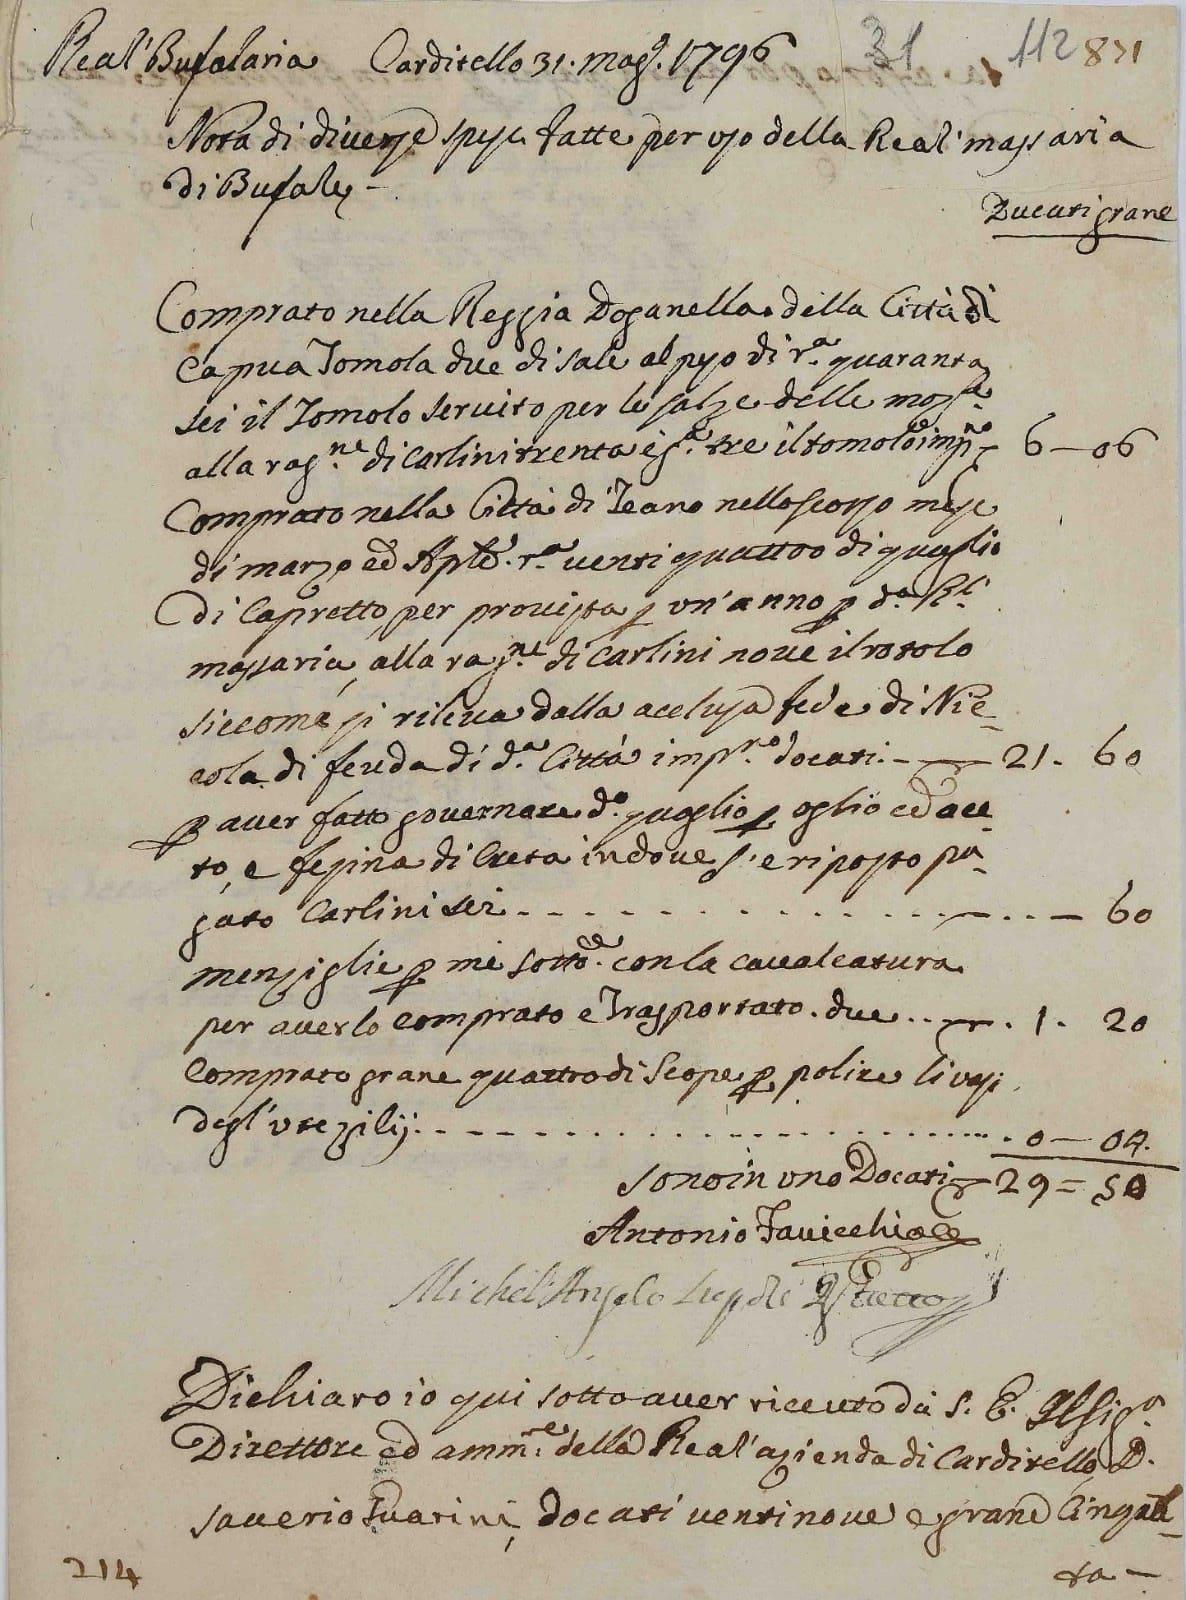 Real' Bufalaria Carditello 31. Mag.o 1796 31 112 831
Nota di diverse spese fatte per uso della Real' massaria
di Bufale –
Ducati grane
Comprato nella Reggia Doganella della Città di
Capua Tomola due di sale al peso di r.a quaranta
sei il Tomolo servito per le salze delle mozz.e
alla rag.ne di Carlini trenta e g.a tre il tomolo imp.no 6 – 06
Comprato nella Città di Teano nello scorso mese
di marzo ed Aple. r.a venti quattro di quaglio
di Capretto, per provista p un' anno p d.a Rl.
massaria, alla rag.ne di Carlini nove il rotolo
siccome si rileva dalla acclusa fede di Nic-
cola di feuda di d.a Città imp.no docati. – 21. 60
p aver fatto governare d.o quaglio p oglio ed ace-
to, e fesina di Creta indove s' e riposto pa-
gato Carlini sei – 60
menziglie p me sotto. con la cavalcatura
per averlo comprato e Trasportato. due . 1. 20
Comprato grane quattro di Scope p polire li vasi
degl' utezilij . 0 – 04.
sono in uno Docati – 29 = 50
Antonio Iavicchiole
Michel' Angelo
Dichiaro io qui sotto aver riceuto da S. E. Il Sig.r
Direttore ed amm.re della Real' azienda di Carditello D.
Saverio Guarini, docati ventinove e grane Cinqua-
ta –
214